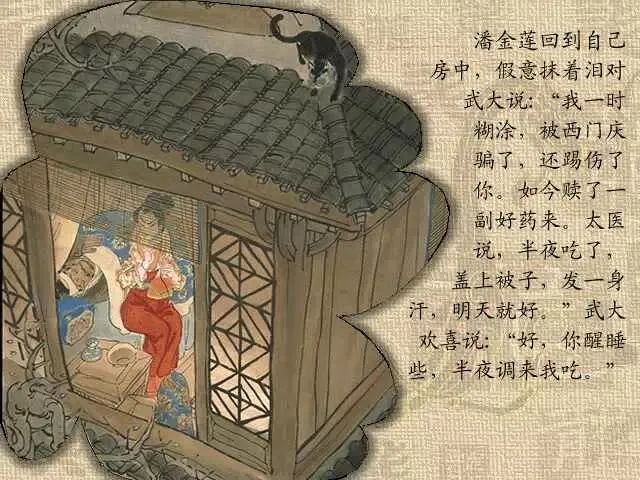 潘金莲回到自己
房中，假意抹着泪对
武大说：“我一时
糊涂，被西门庆
骗了，还踢伤了
你。如今赎了一
副好药来。太医
说，半夜吃了，
盖上被子，发一身
汗，明天就好。”武大
欢喜说：“好，你醒睡
些，半夜调来我吃。”